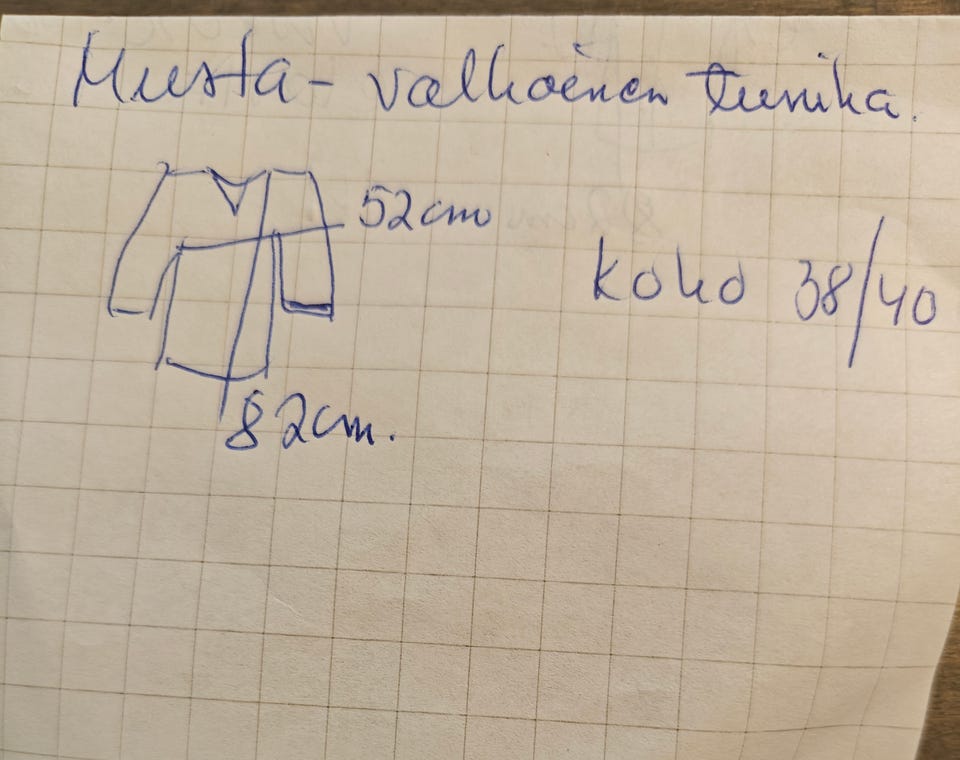 Musta-valkoinen tunika.
52cm
koko 38/40
82cm.